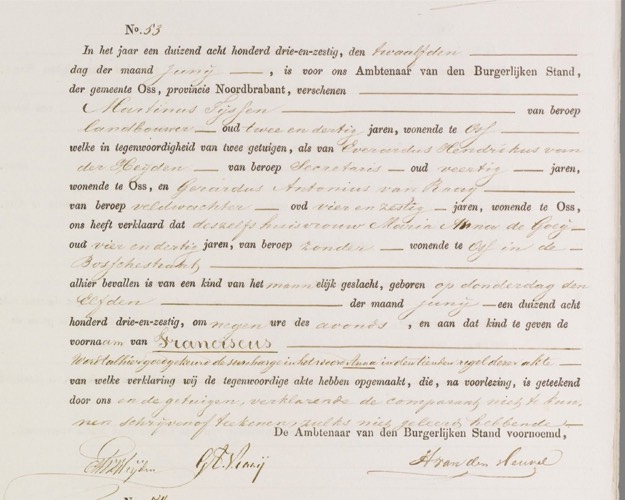 No. 53
In het jaar een duizend acht honderd drie-en-zestig, den twaalfden
dag der maand Junij, is voor ons Ambtenaar van den Burgerlijken Stand,
der gemeente Oss, provincie Noordbrabant, verschenen
Martinus Tijssen van beroep
landbouwer oud twee en dertig jaren, wonende te Oss
welke in tegenwoordigheid van twee getuigen, als van Everardus Hendrikus van
der Heijden van beroep Secretaris oud veertig jaren,
wonende te Oss, en Gerardus Antonius van Raaij
van beroep veldwachter oud vier en zestig jaren, wonende te Oss,
ons heeft verklaard dat deszelfs huisvrouw Maria Anna de Goeij
oud vier en dertig jaren, van beroep zonder wonende te Oss in de
Bosschestraat,
alhier bevallen is van een kind van het mannelijk geslacht, geboren op donderdag den
Elfden der maand Junij een duizend acht
honderd drie-en-zestig, om negen ure des avonds, en aan dat kind te geven de
voornaam van Franciscus
Wordt alhier goedgekeurd de surcharge in het woord Anna in den tienden regel dezer akte
van welke verklaring wij de tegenwoordige akte hebben opgemaakt, die, na voorlezing, is geteekend
door ons en de getuigen, verklarende de comparant niet te kun-
nen schrijven of teekenen, zulks niet geleerd hebbende
De Ambtenaar van den Burgerlijken Stand voornoemd,
H van den Heuvel